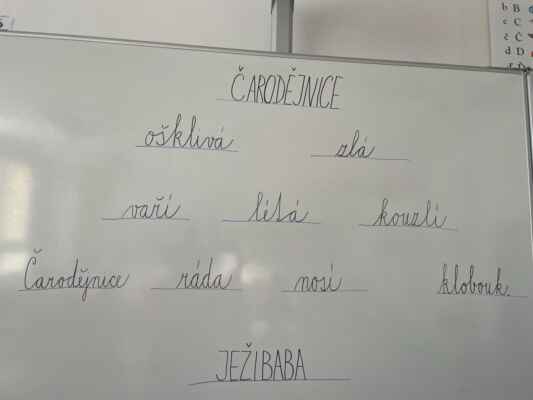 ČARODĚJNICE
ošklivá zlá
vaří létá kouzlí
Čarodějnice ráda nosí klobouk.
JEŽIBABA
b B
c C
č Č
d D